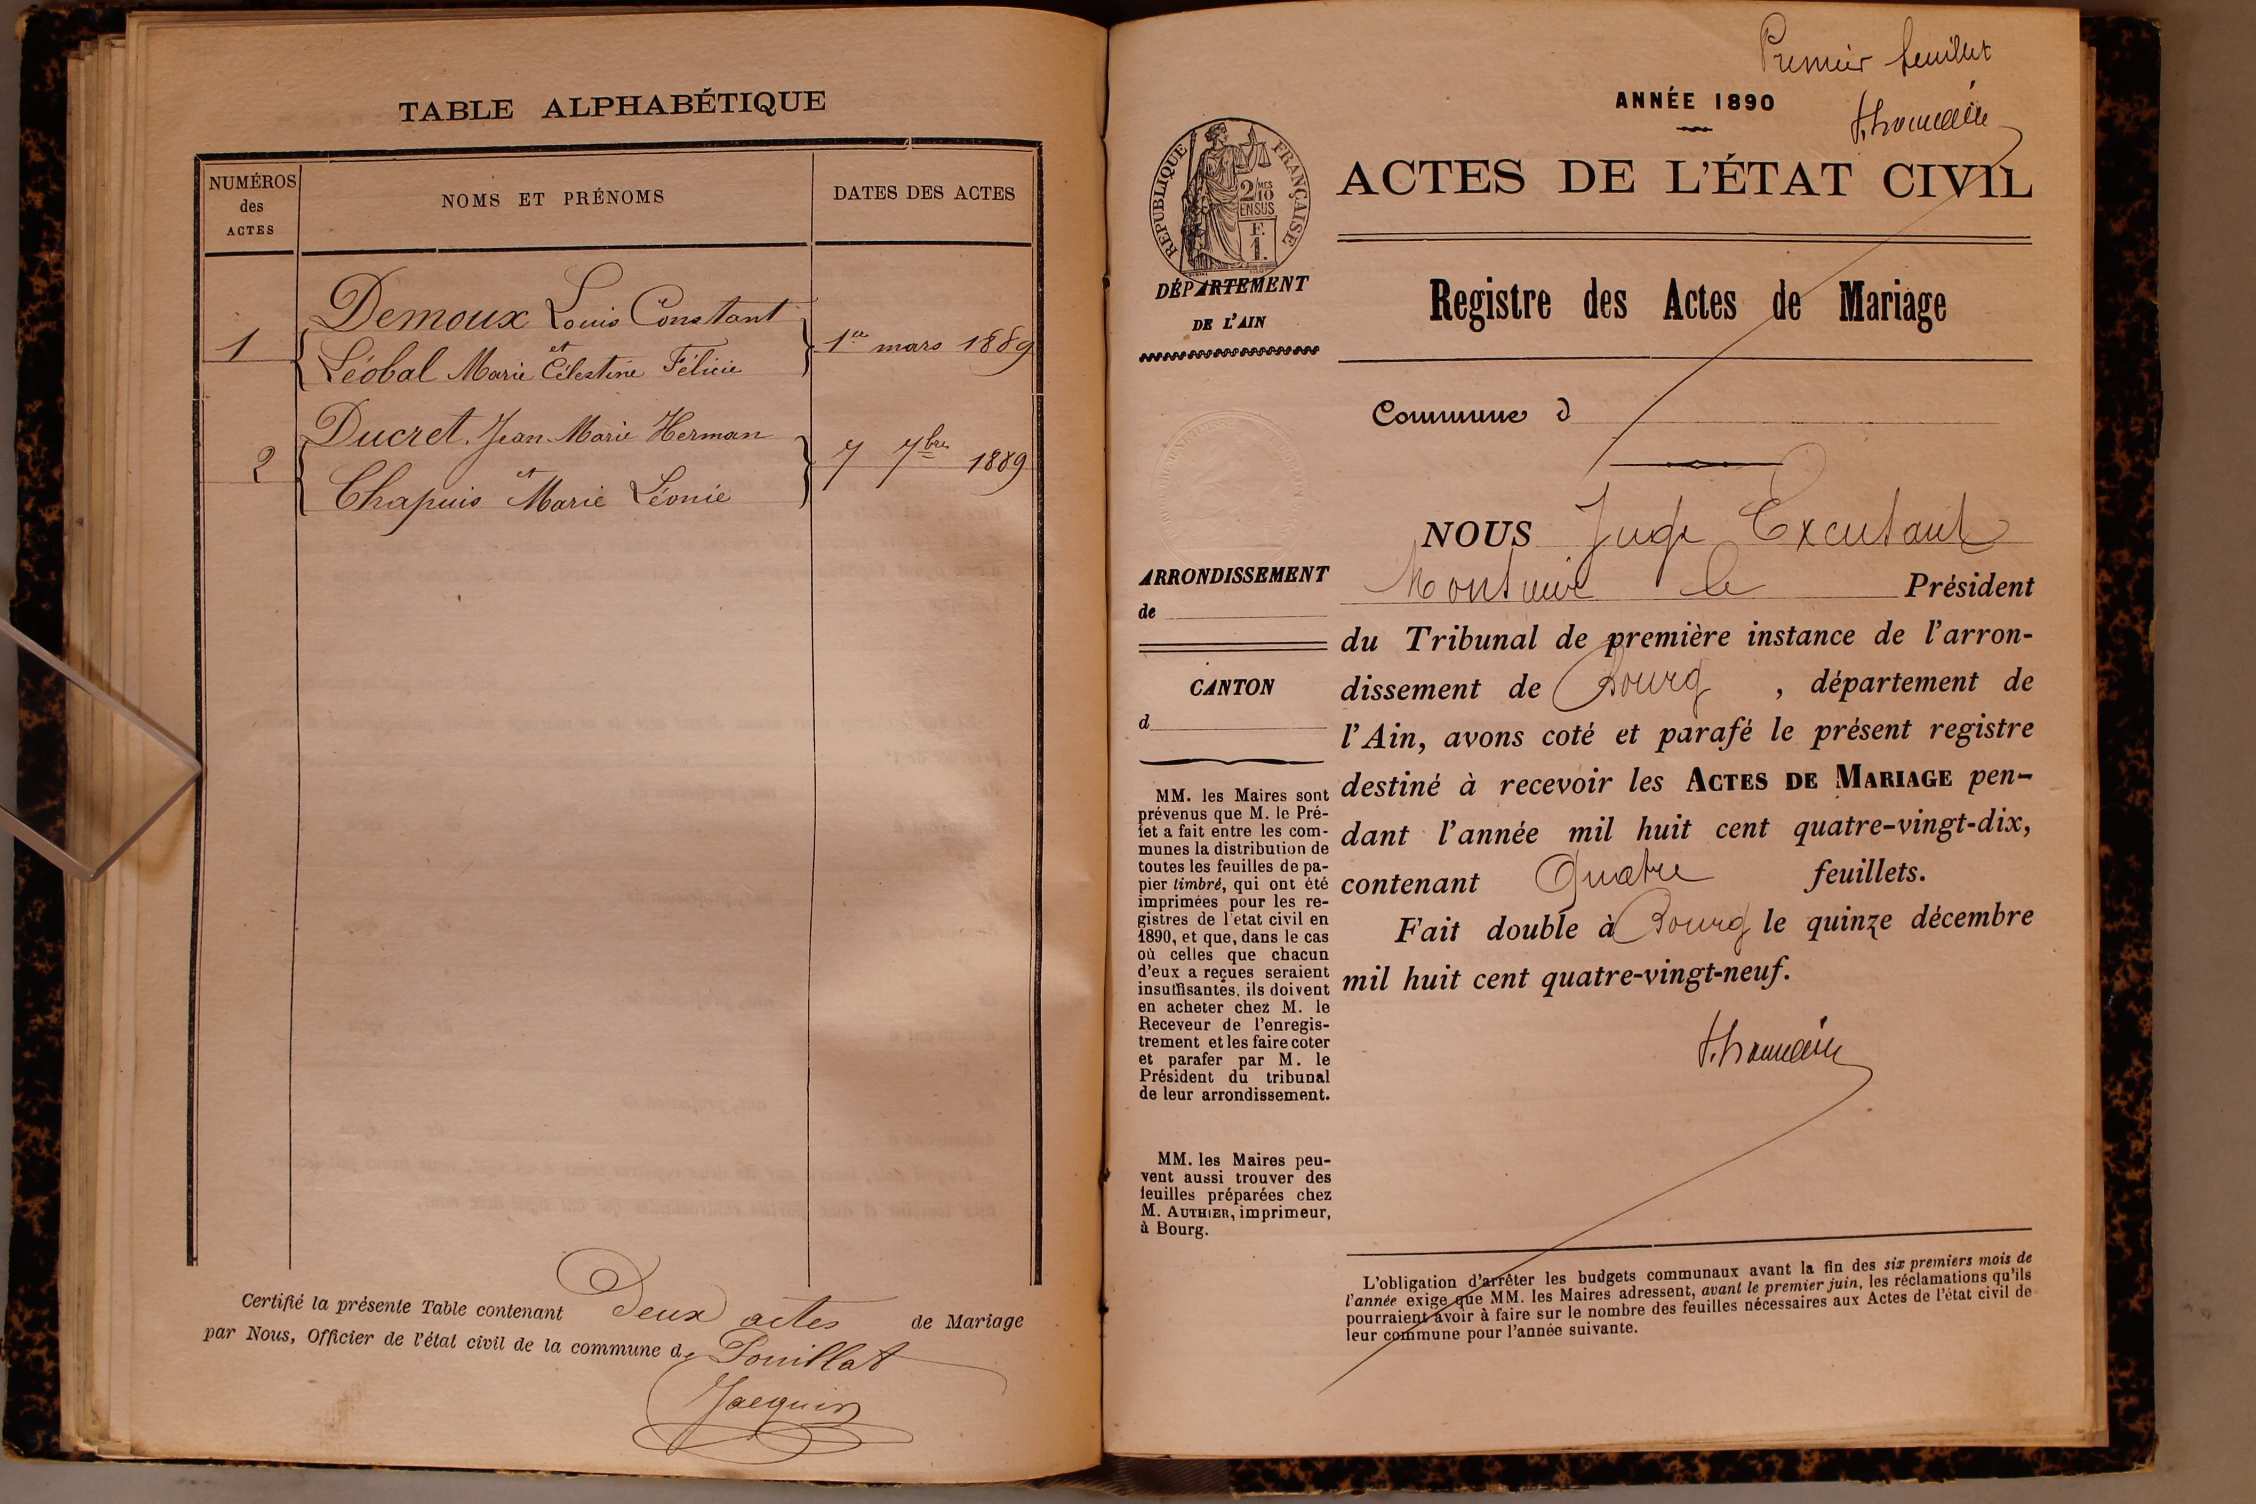 TABLE ALPHABÉTIQUE
NUMÉROS
des
ACTES
NOMS ET PRÉNOMS
DATES DES ACTES
Demoux Louis Constant
1
et
1er mars 1889
Léobal Marie Célestine Félicie
Ducret Jean Marie Herman
2
et
7 7bre 1889
Chapuis Marie Léonie
Certifié la présente Table contenant Deux actes de Mariage
par Nous, Officier de l'état civil de la commune de Pouillat
Jacquin
Premier feuillet
ANNÉE 1890
ACTES DE L'ÉTAT CIVIL
RÉPUBLIQUE FRANÇAISE
2/10
MES
EN SUS
F.
1.
DÉPARTEMENT
DE L'AIN
Registre des Actes de Mariage
Commune d
ARRONDISSEMENT
de
CANTON
d
MM. les Maires sont
prévenus que M. le Pré-
fet a fait entre les com-
munes la distribution de
toutes les feuilles de pa-
pier timbré, qui ont été
imprimées pour les re-
gistres de l'état civil en
1890, et que, dans le cas
où celles que chacun
d'eux a reçues seraient
insuffisantes, ils doivent
en acheter chez M. le
Receveur de l'enregis-
trement et les faire coter
et parafer par M. le
Président du tribunal
de leur arrondissement.
MM. les Maires peu-
vent aussi trouver des
feuilles préparées chez
M. AUTHIER, imprimeur,
à Bourg.
NOUS Juge
le Président
du Tribunal de première instance de l'arron-
dissement de Bourg, département de
l'Ain, avons coté et parafé le présent registre
destiné à recevoir les ACTES DE MARIAGE pen-
dant l'année mil huit cent quatre-vingt-dix,
contenant Quatre feuillets.
Fait double à Bourg le quinze décembre
mil huit cent quatre-vingt-neuf.
L'obligation d'arrêter les budgets communaux avant la fin des six premiers mois de
l'année exige que MM. les Maires adressent, avant le premier juin, les réclamations qu'ils
pourraient avoir à faire sur le nombre des feuilles nécessaires aux Actes de l'état civil de
leur commune pour l'année suivante.